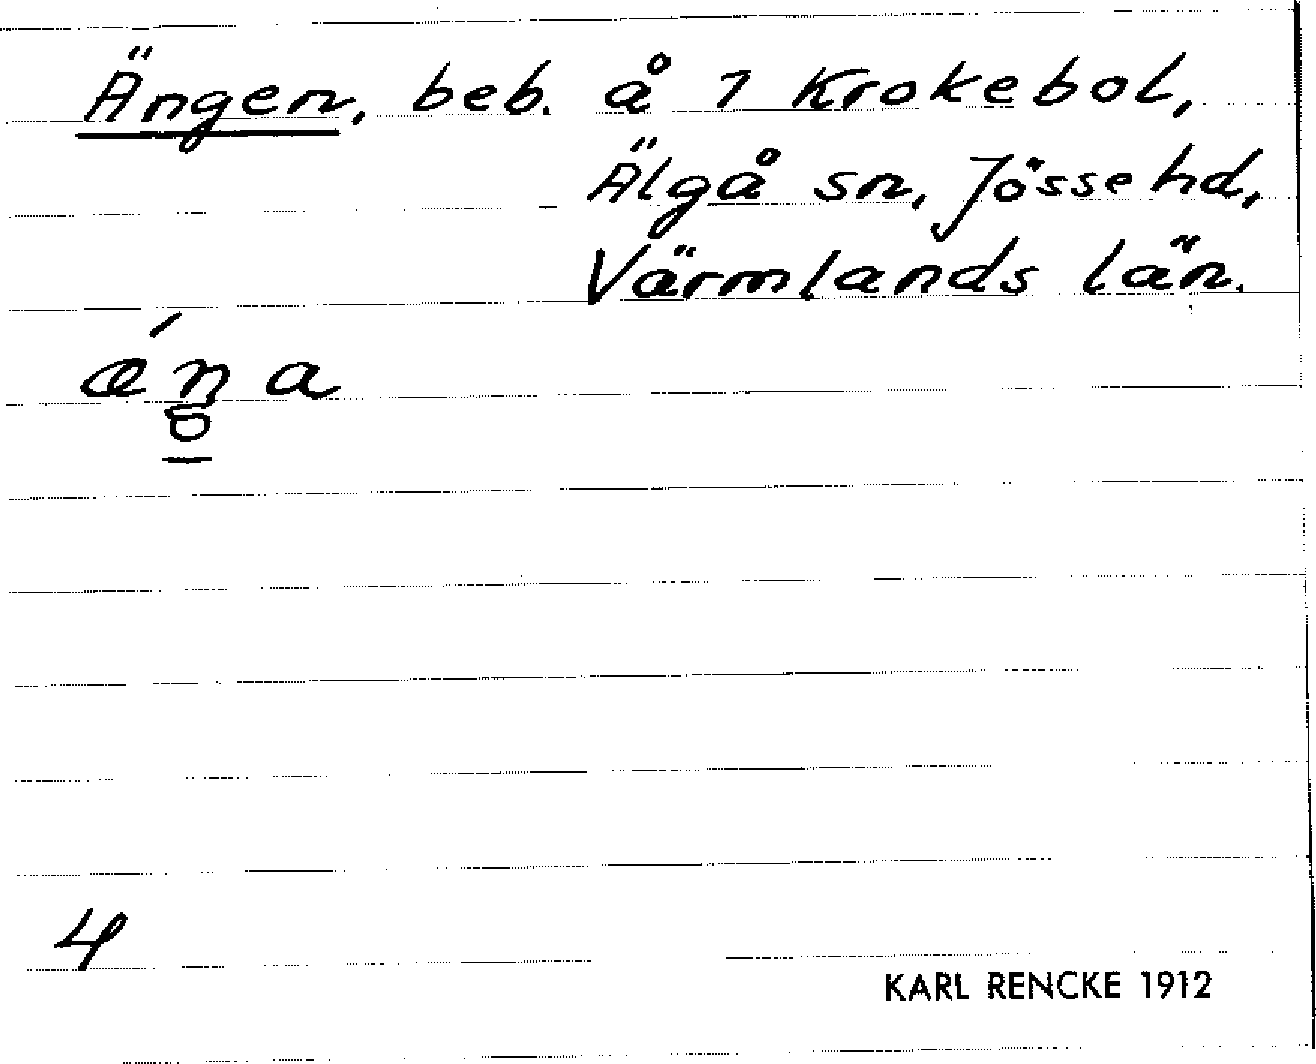 Ängen, beb. å 1 Krokebol,
Älgå sn, Jösse hd,
Värmlands län.
4
KARL RENCKE 1912